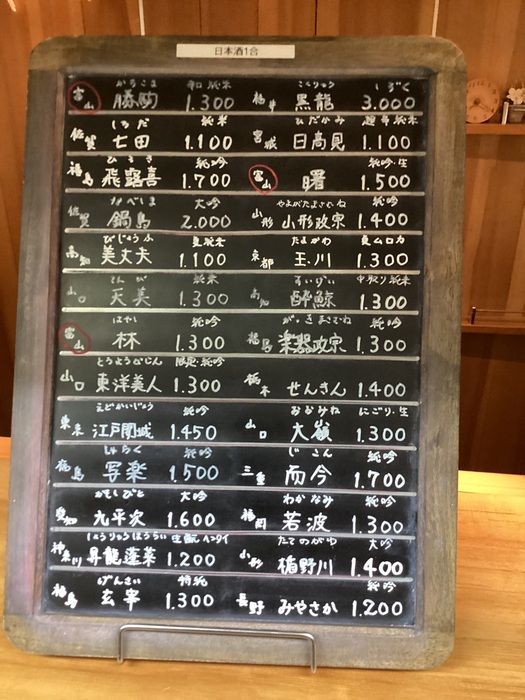 日本酒1合
かちこま 純米
富山 勝駒 1.300
こくりゅう しずく
福井 黒龍 3.000
しちだ 純米
佐賀 七田 1.100
ひだかみ 超辛純米
宮城 日高見 1.100
ひろき 純吟
福島 飛露喜 1.700
純吟・生
富山 曙 1.500
なべしま 大吟
佐賀 鍋島 2.000
やまがたまさむね 純吟
山形 山形政宗 1.400
びじょうふ 夏純米
高知 美丈夫 1.100
たまがわ 夏ムロカ
京都 玉川 1.300
てんび 純米
山口 天美 1.300
すいげい 中取り純米
高知 酔鯨 1.300
はやし 純吟
富山 林 1.300
がっきまさむね 純吟
福島 楽器政宗 1.300
とうようびじん 限定・純吟
山口 東洋美人 1.300
栃木 せんきん 1.400
えどかいじょう 純吟
東京 江戸開城 1.450
おおみね にごり・生
山口 大嶺 1.300
しゃらく 純吟
福島 写楽 1.500
じこん 純吟
三重 而今 1.700
かもしびと 大吟
愛知 九平次 1.600
わかなみ 純吟
福岡 若波 1.300
しょうりゅうほうらい 生酛
神奈川 昇龍蓬莱 1.200
たてのがわ 大吟
山形 楯野川 1.400
げんさい 特純
福島 玄宰 1.300
純吟
長野 みやさか 1.200